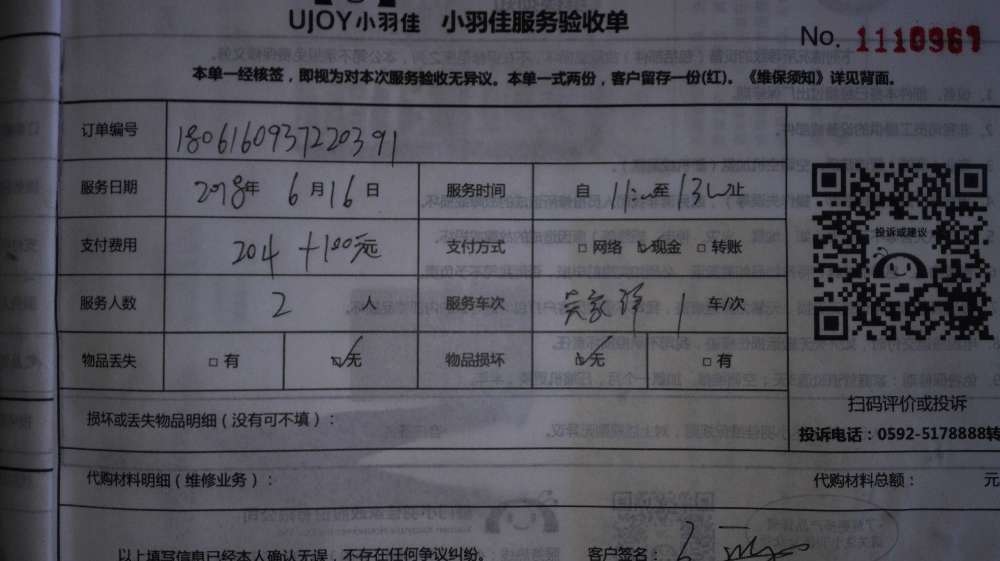 UJOY小羽佳 小羽佳服务验收单
No. 1110967
本单一经核签，即视为对本次服务验收无异议。本单一式两份，客户留存一份(红)。《维保须知》详见背面。
订单编号 180616093722039 1
服务日期 2018年 6月16日 服务时间 自 11:00至13 止
支付费用 204 +100元 支付方式 □网络 ☑现金 □转账
服务人数 2 人 服务车次 1 车/次
物品丢失 □有 ☑无 物品损坏 ☑无 □有
投诉或建议
扫码评价或投诉
投诉电话：0592-5178888转
损坏或丢失物品明细（没有可不填）：
代购材料明细（维修业务）： 代购材料总额： 元
以上填写信息已经本人确认无误，不存在任何争议纠纷。 客户签名：